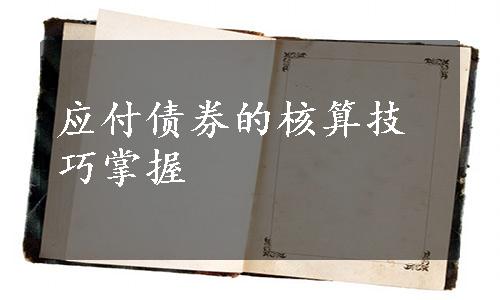 应付债券的核算技
巧掌握